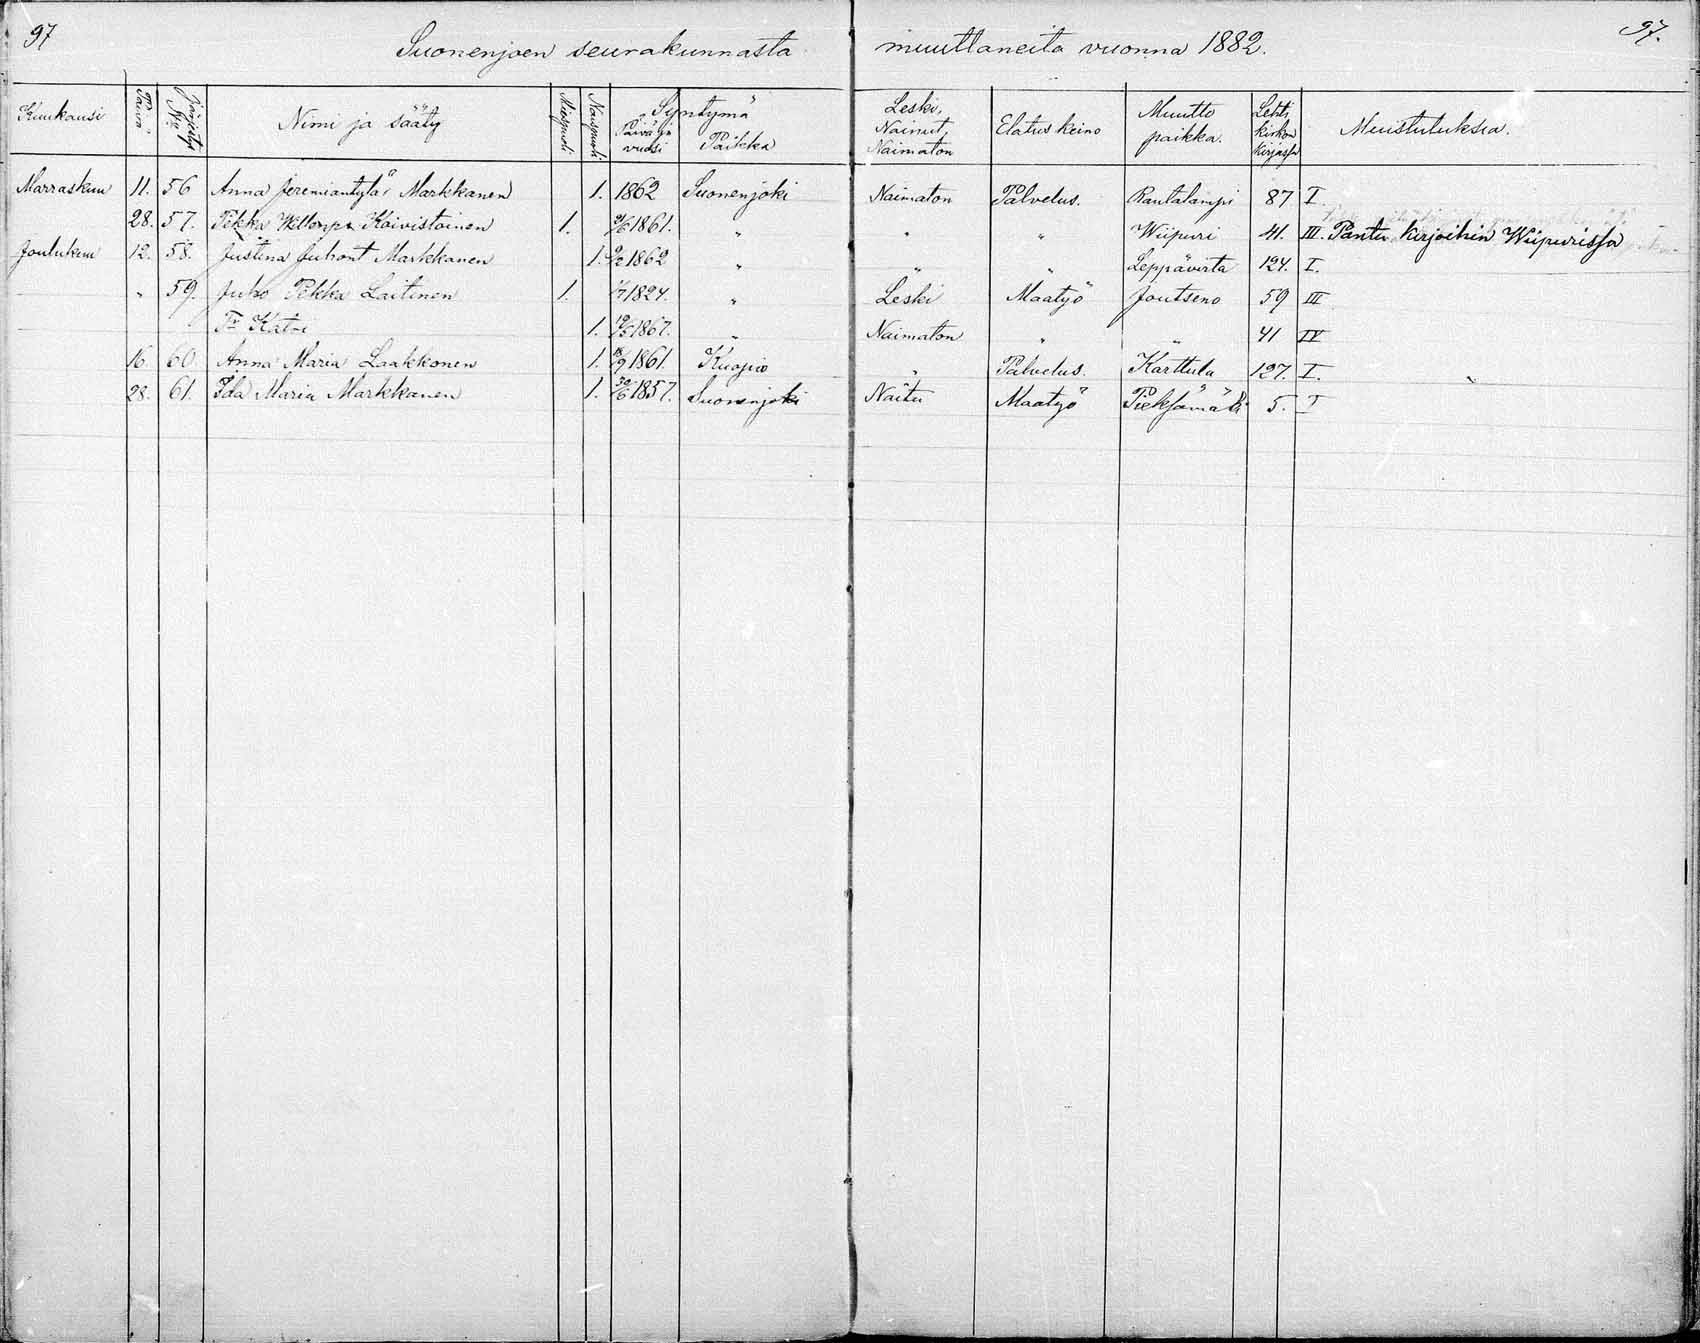 97
Suonenjoen seurakunnasta muuttaneita vuonna 1882.
97.
Kuukausi Päivä Järjestys Nro Nimi ja sääty Miespuoli Naispuoli Syntymä Päivä ja vuosi Paikka Leski, Nainut, Naimaton Elatus keino Muutto paikka. Lehti kirkon kirjassa Muistutuksia.
Marraskuu 11. 56 Anna Jeremiantytä Markkanen 1. 1862 Suonenjoki Naimaton Palvelus. Rautalampi 87 I.
28. 57. Pekka Koivistoinen 1. 1861. " " " Wiipuri 41. III. Pantu kirjoihin Wiipurissa
Joulukuu 12. 58. Justina Juhont Markkanen 1. 1862 " " " Leppävirta 124. I.
" 59. Juho Pekka Laitinen 1. 1824. " Leski Maatyö Joutseno 59 III
Tr Katri 1. 19/5 1867. " Naimaton " " 41 IV
16 60 Anna Maria Laakkonen 1. 1861. Kuopio " Palvelus. Karttula 127. I. "
28. 61. Ida Maria Markkanen 1. 30/6 1857. Suonenjoki Naitu Maatyö Pieksämäki 5. I